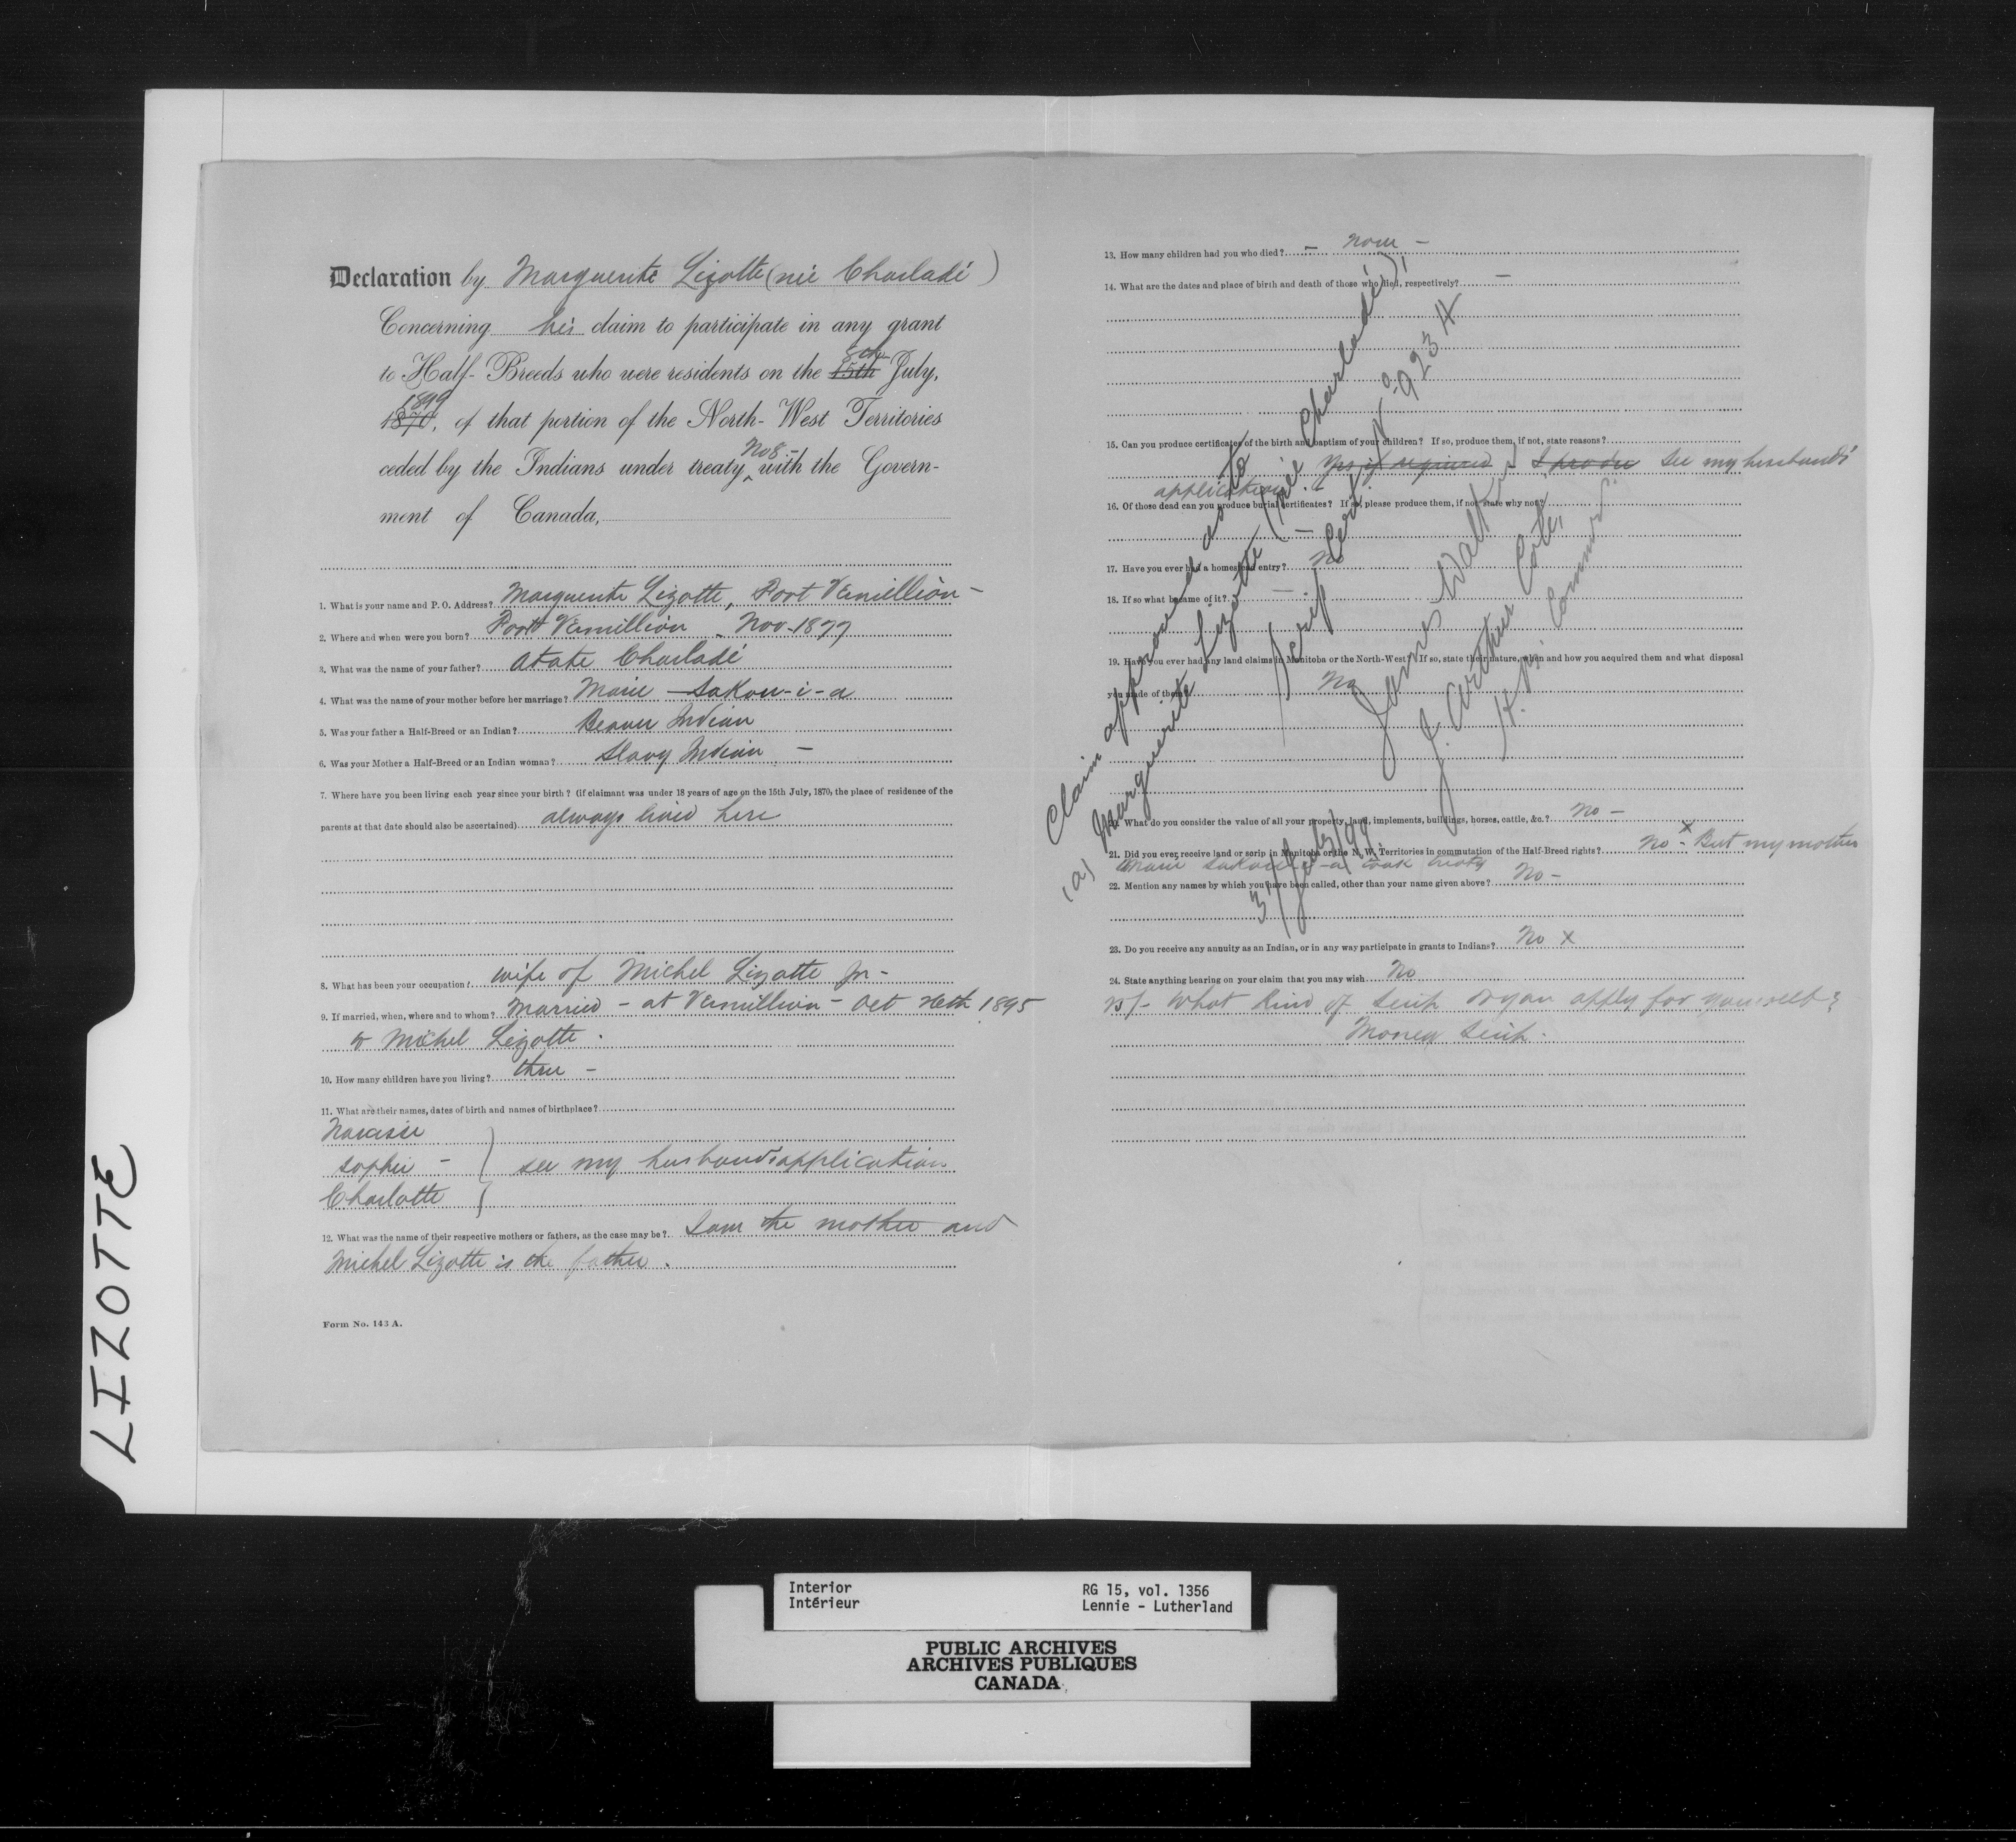 Declaration by Marguerite Lizotte (née Charladé)
Concerning her claim to participate in any grant
to Half-Breeds who were residents on the 15th 8th July,
1870 1899, of that portion of the North-West Territories
ceded by the Indians under treaty No 8 - with the Govern-
ment of Canada,
1. What is your name and P. O. Address? Marguerite Lizotte, Fort Vermillion -
2. Where and when were you born? Fort Vermillion - Nov - 1877
3. What was the name of your father? Atate Charladé
4. What was the name of your mother before her marriage? Marie - Sakou-i-a
5. Was your father a Half-Breed or an Indian? Beaver Indian
6. Was your Mother a Half-Breed or an Indian woman? Slavy Indian -
7. Where have you been living each year since your birth? (if claimant was under 18 years of age on the 15th July, 1870, the place of residence of the
parents at that date should also be ascertained) always lived here
8. What has been your occupation? wife of Michel Lizotte Jr -
9. If married, when, where and to whom? Married - at Vermillion - Oct 1895
to Michel Lizotte.
10. How many children have you living? three -
11. What are their names, dates of birth and names of birthplace?
Narcisse
Sophie - } see my husbands application
Charlotte
12. What was the name of their respective mothers or fathers, as the case may be? I am the mother and
Michel Lizotte is the father.
Form No. 143 A.
13. How many children had you who died? - none -
14. What are the dates and place of birth and death of those who died, respectively? -
15. Can you produce certificates of the birth and baptism of your children? If so, produce them, if not, state reasons?
Yes if required - I produce see my husbands'
application.
16. Of those dead can you produce burial certificates? If so, please produce them, if not state why not?
-
17. Have you ever had a homestead entry? No
18. If so what became of it? -
19. Have you ever had any land claims in Manitoba or the North-West? If so, state their nature, when and how you acquired them and what disposal
you made of them? No
20. What do you consider the value of all your property, land, implements, buildings, horses, cattle, &c.? No -
21. Did you ever receive land or scrip in Manitoba or the N. W. Territories in commutation of the Half-Breed rights? No - x But my mother
Marie Sakou-i-a took treaty
22. Mention any names by which you have been called, other than your name given above? No -
23. Do you receive any annuity as an Indian, or in any way participate in grants to Indians? No x
24. State anything bearing on your claim that you may wish No
25/- What kind of scrip do you apply for yourself?
Money Scrip.
Claim approved as to
(a) Marguerite Lizotte (née Charladé),
Scrip Cert. No. 923 A
James Walker
J. Arthur Coté,
H. B. Commrs.
31/July/99.
LIZOTTE
Interior
Intérieur
RG 15, vol. 1356
Lennie - Lutherland
PUBLIC ARCHIVES
ARCHIVES PUBLIQUES
CANADA